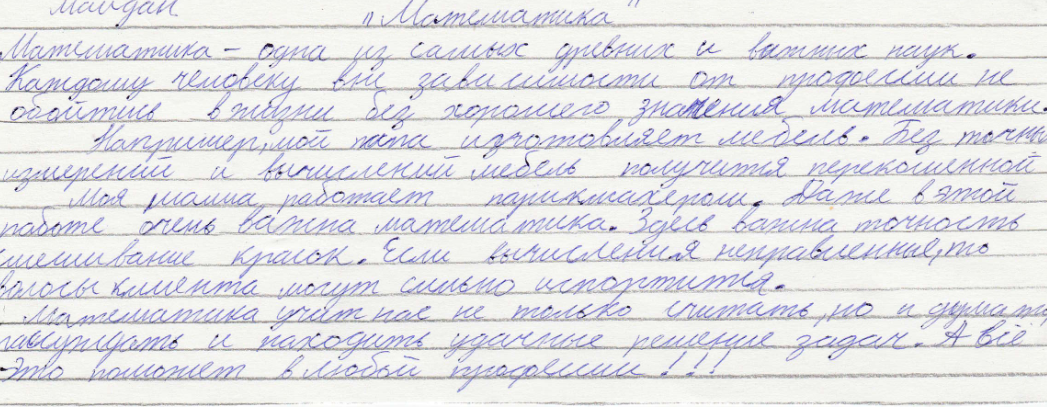 Майдан „Математика"
Математика – одна из самых древних и важных наук.
Каждому человеку вне зависимости от профессии не
обойтись в жизни без хорошего знания математики.
Например, мой папа изготовляет мебель. Без точны
измерений и вычислений мебель получится перекошенной
Моя мама работает парикмахером. Даже в этой
работе очень важна математика. Здесь важна точность
смешивание красок. Если вычисления неправленные, то
волосы клиента могут сильно испортится.
Математика учит нас не только считать, но и думать,
рассуждать и находить удачные решение задач. А всё
это поможет в любой профессии!!!